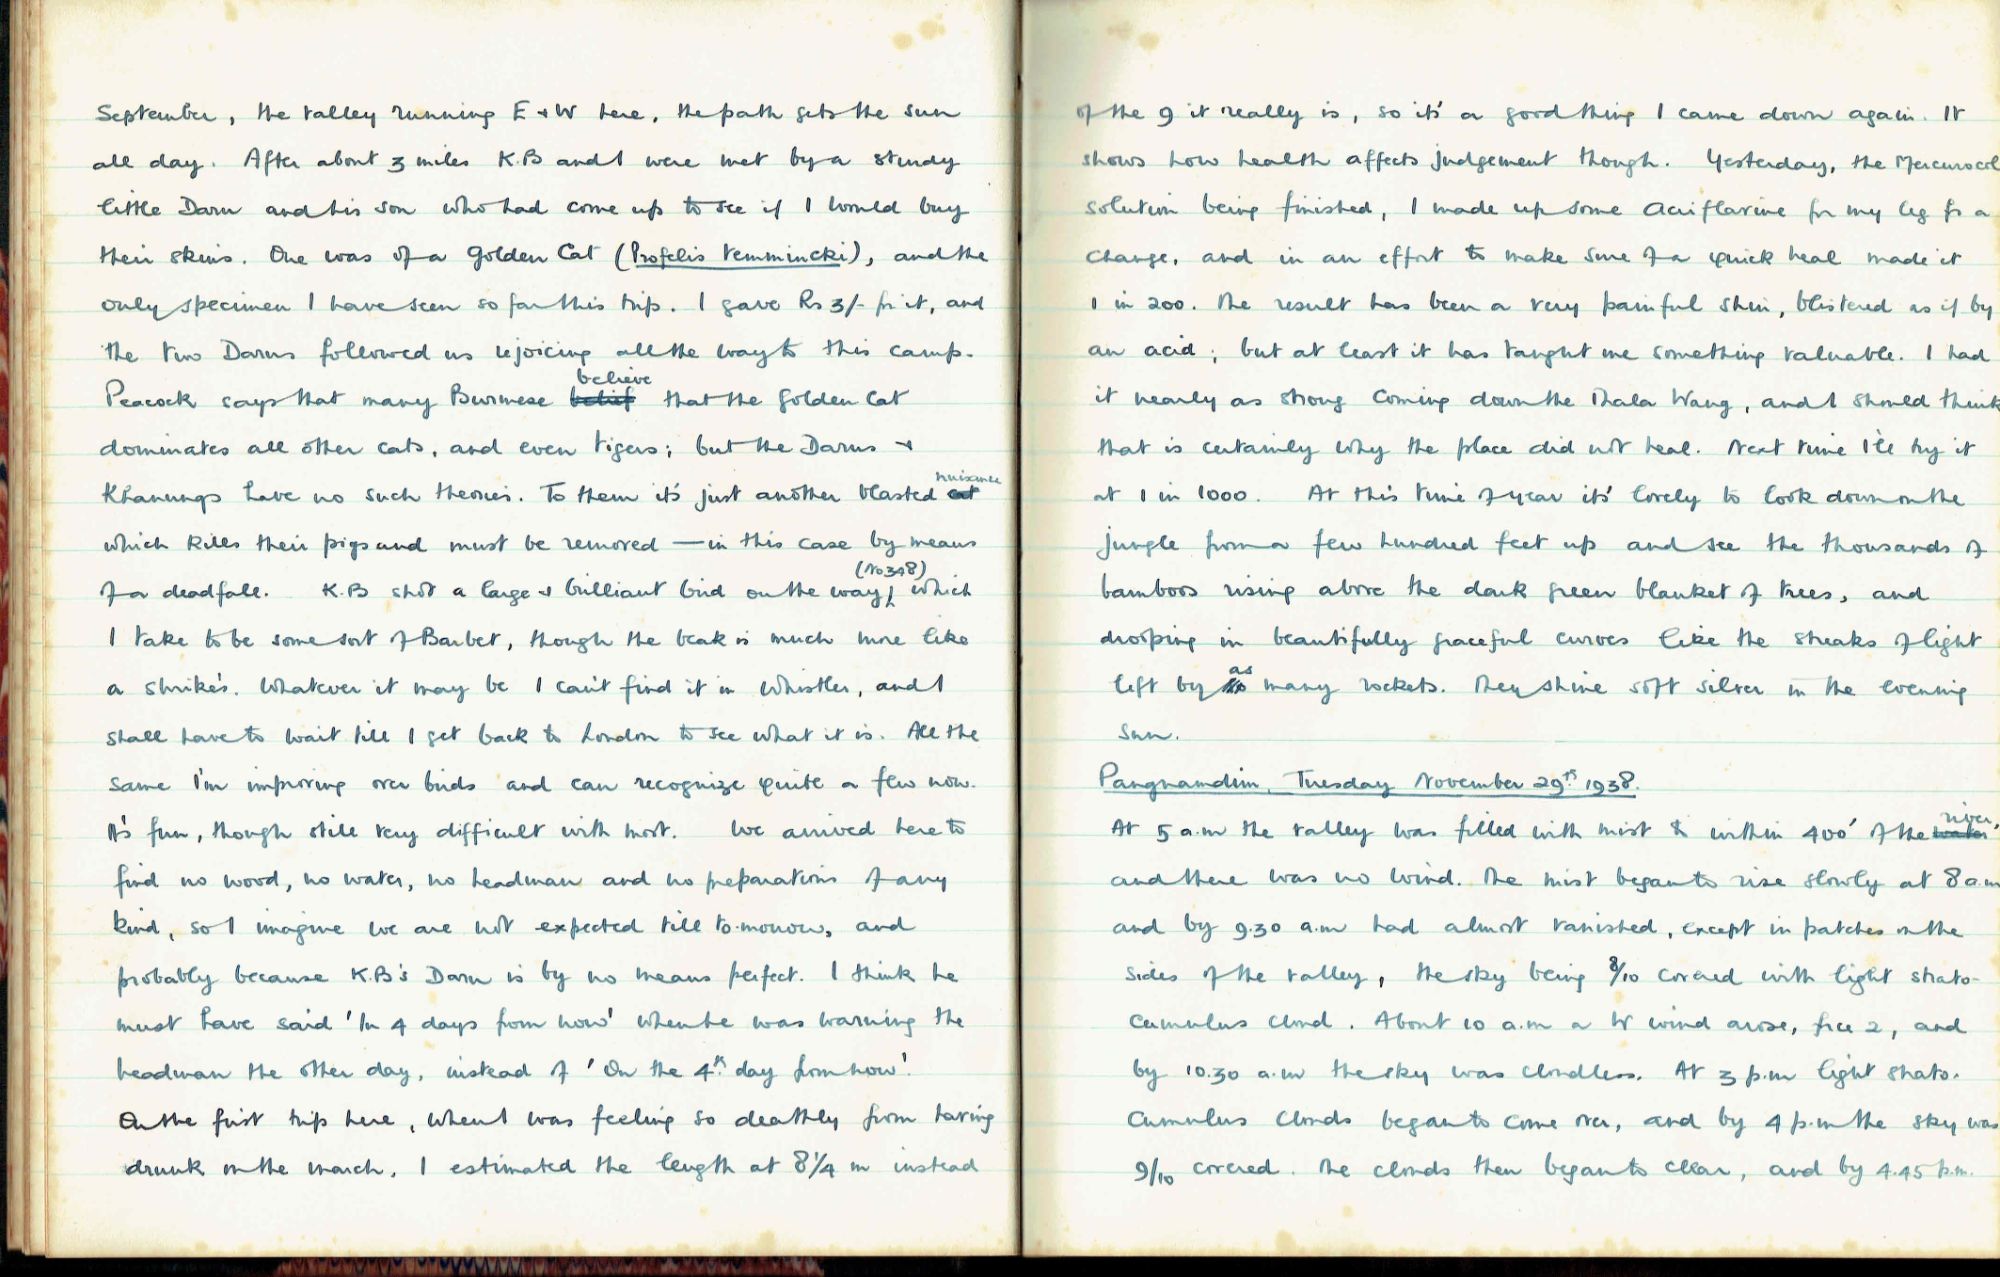 September, the valley running E & W here, the path gets the sun
all day. After about 3 miles K.B and I were met by a sturdy
little Daru and his son who had come up to see if I would buy
their skins. One was of a Golden Cat (Profelis temmincki), and the
only specimen I have seen so far this trip. I gave Rs 3/- for it, and
the two Darus followed us rejoicing all the way to this camp.
Peacock says that many Burmese belief believe that the Golden Cat
dominates all other cats, and even tigers; but the Darus &
Khanungs have no such theories. To them it's just another blasted cat nuisance
which kills their pigs and must be removed — in this case by means
of a deadfall. K.B shot a large & brilliant bird on the way, (No 348) which
I take to be some sort of Barbet, though the beak is much more like
a shrike's. Whatever it may be I can't find it in Whistler, and I
shall have to wait till I get back to London to see what it is. All the
same I'm improving over birds and can recognize quite a few now.
It's fun, though still very difficult with most. We arrived here to
find no wood, no water, no headman and no preparations of any
kind, so I imagine we are not expected till to-morrow, and
probably because K.B's Daru is by no means perfect. I think he
must have said 'In 4 days from now' when he was warning the
headman the other day, instead of 'On the 4th day from now'.
On the first trip here, when I was feeling so deathly from having
drunk on the march, I estimated the length at 8¼ m instead
of the 9 it really is, so it's a good thing I came down again. It
shows how health affects judgement though. Yesterday, the Mercurocol
solution being finished, I made up some Acriflavine for my leg for a
change, and in an effort to make sure of a quick heal made it
1 in 200. The result has been a very painful shin, blistered as if by
an acid; but at least it has taught me something valuable. I had
it nearly as strong coming down the Thala Wang, and I should think
that is certainly why the place did not heal. Next time I'll try it
at 1 in 1000. At this time of year it's lovely to look down on the
jungle from a few hundred feet up and see the thousands of
bamboos rising above the dark green blanket of trees, and
drooping in beautifully graceful curves like the streaks of light
left by as many rockets. They shine soft silver in the evening
sun.
Pangnamdim, Tuesday November 29th 1938.
At 5 a.m the valley was filled with mist to within 400' of the water river,
and there was no wind. The mist began to rise slowly at 8 a.m
and by 9.30 a.m had almost vanished, except in patches on the
sides of the valley, the sky being 8/10 covered with light strato-
cumulus cloud. About 10 a.m a W wind arose, force 2, and
by 10.30 a.m the sky was cloudless. At 3 p.m light strato-
cumulus clouds began to come over, and by 4 p.m the sky was
9/10 covered. The clouds then began to clear, and by 4.45 p.m.